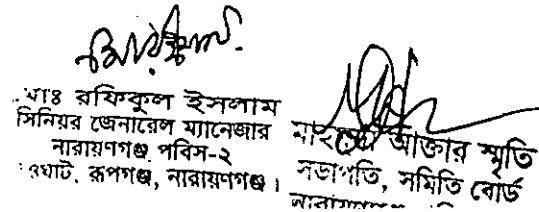 মোঃ রফিকুল ইসলাম
সিনিয়র জেনারেল ম্যানেজার
নারায়ণগঞ্জ পবিস-২
রূপগঞ্জ, নারায়ণগঞ্জ।
আক্তার স্মৃতি
সভাপতি, সমিতি বোর্ড